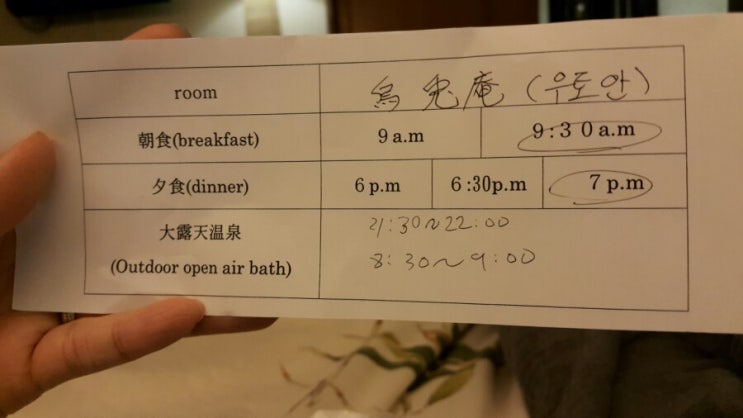 room 烏兎庵 (우도안)
朝食(breakfast) 9 a.m 9:30 a.m
夕食(dinner) 6 p.m 6:30p.m 7 p.m
大露天温泉 21:30~22:00
(Outdoor open air bath) 8:30~9:00